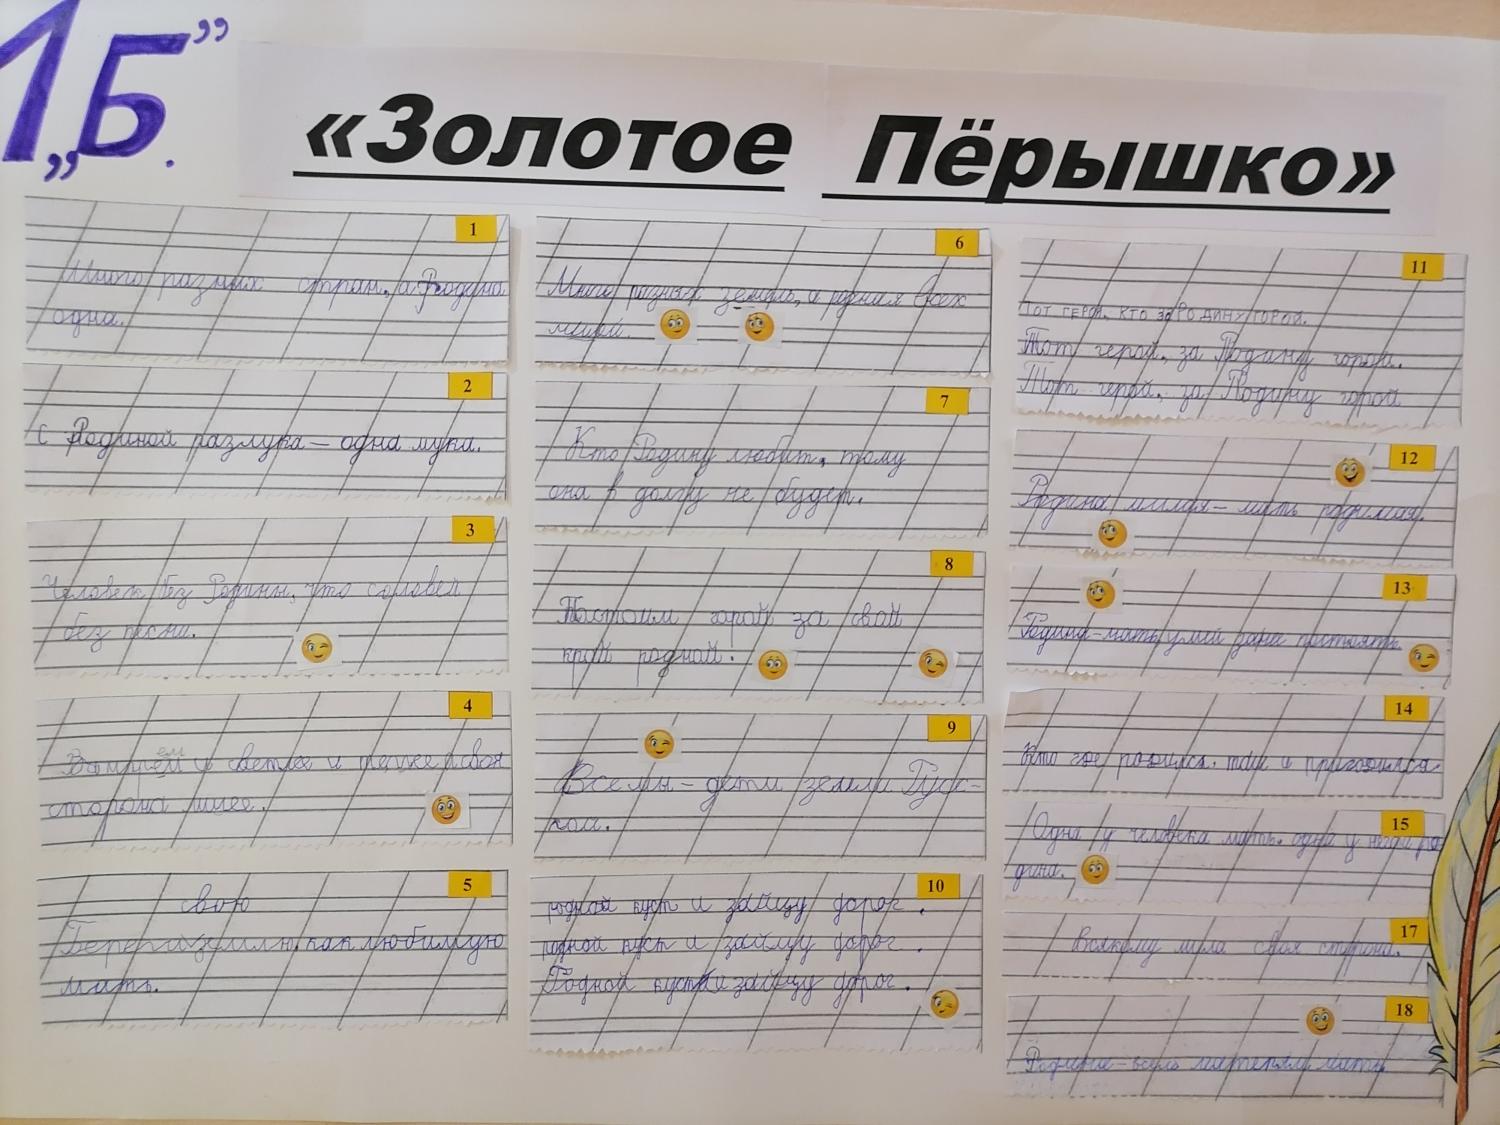 1 „Б”.
«Золотое Пёрышко»
1
Много разных стран, а Родина
одна.
2
С Родиной разлука – одна мука.
3
Человек без Родины, что соловей
без песни.
4
и светлее и теплее а своя
сторона милее.
5
свою
Береги землю, как любимую
мать.
6
Много разных земель, а родная всех
милей.
7
Кто Родину любит, тому
она в долгу не будет.
8
Постоим горой за свой
край родной.
9
Все мы – дети земли Рус-
кой.
10
родной куст и зайцу дорог.
родной куст и зайцу дорог.
Родной куст и зайцу дорог.
11
ТОТ ГЕРОЙ, КТО ЗА РОДИНУ ГОРОЙ.
Тот герой, за Родину горой.
Тот герой, за Родину горой
12
Родина милая – мать родимая.
13
Родина – мать, умей за постоять.
14
Кто где родился, там и пригодился
15
Одна у человека мать, одна у него и ро-
дина.
17
Всякому мила своя сторона.
18
Родина – всем матерям мать